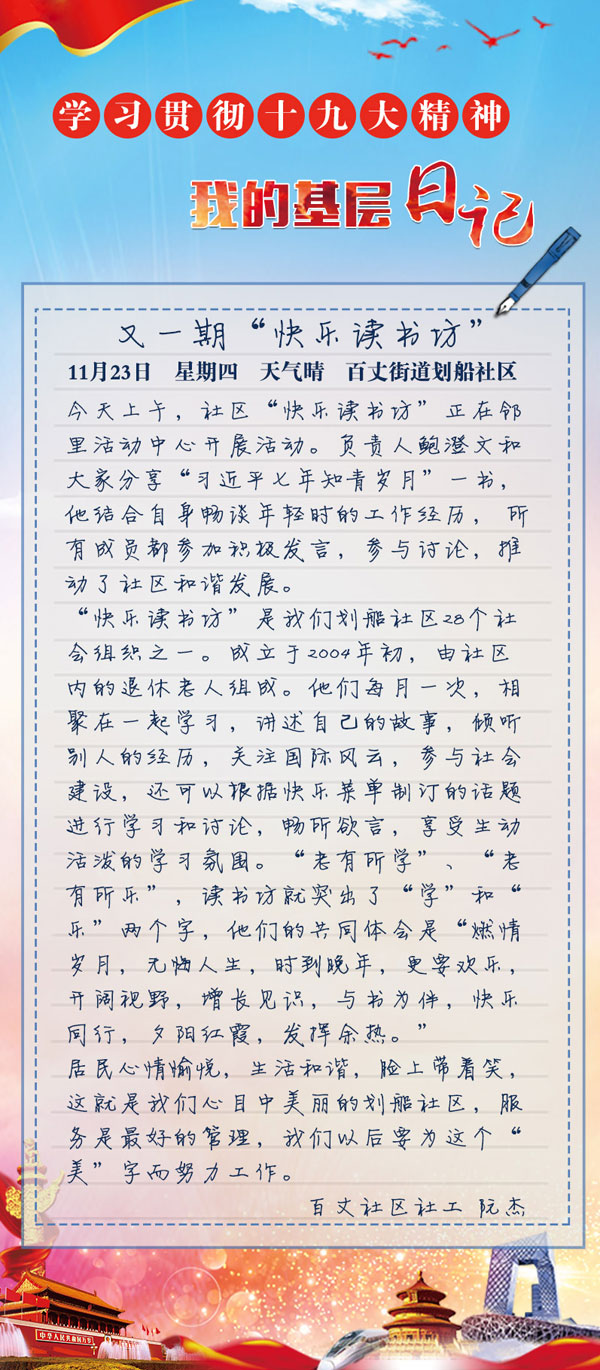 学习贯彻十九大精神
我的基层日记
又一期“快乐读书坊”
11月23日 星期四 天气晴 百丈街道划船社区
今天上午，社区“快乐读书坊”正在邻
里活动中心开展活动。负责人鲍澄文和
大家分享“习近平七年知青岁月”一书，
他结合自身畅谈年轻时的工作经历，所
有成员都参加积极发言，参与讨论，推
动了社区和谐发展。
“快乐读书坊”是我们划船社区28个社
会组织之一。成立于2004年初，由社区
内的退休老人组成。他们每月一次，相
聚在一起学习，讲述自己的故事，倾听
别人的经历，关注国际风云，参与社会
建设，还可以根据快乐菜单制订的话题
进行学习和讨论，畅所欲言，享受生动
活泼的学习氛围。“老有所学”、“老
有所乐”，读书坊就突出了“学”和“
乐”两个字，他们的共同体会是“燃情
岁月，无悔人生，时到晚年，更要欢乐，
开阔视野，增长见识，与书为伴，快乐
同行，夕阳红霞，发挥余热。”
居民心情愉悦，生活和谐，脸上带着笑，
这就是我们心目中美丽的划船社区，服
务是最好的管理，我们以后要为这个“
美”字而努力工作。
百丈社区社工 阮杰
中华人民共和国万岁